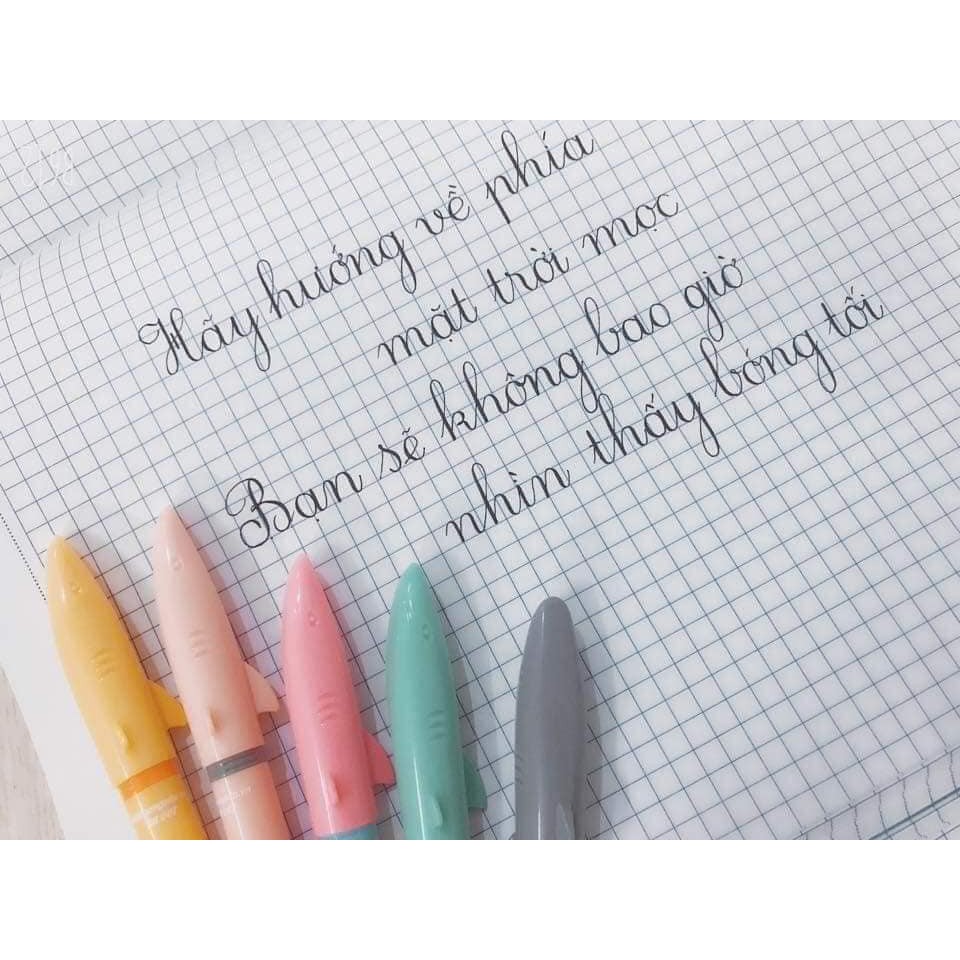 Hãy hướng về phía
mặt trời mọc
Bạn sẽ không bao giờ
nhìn thấy bóng tối